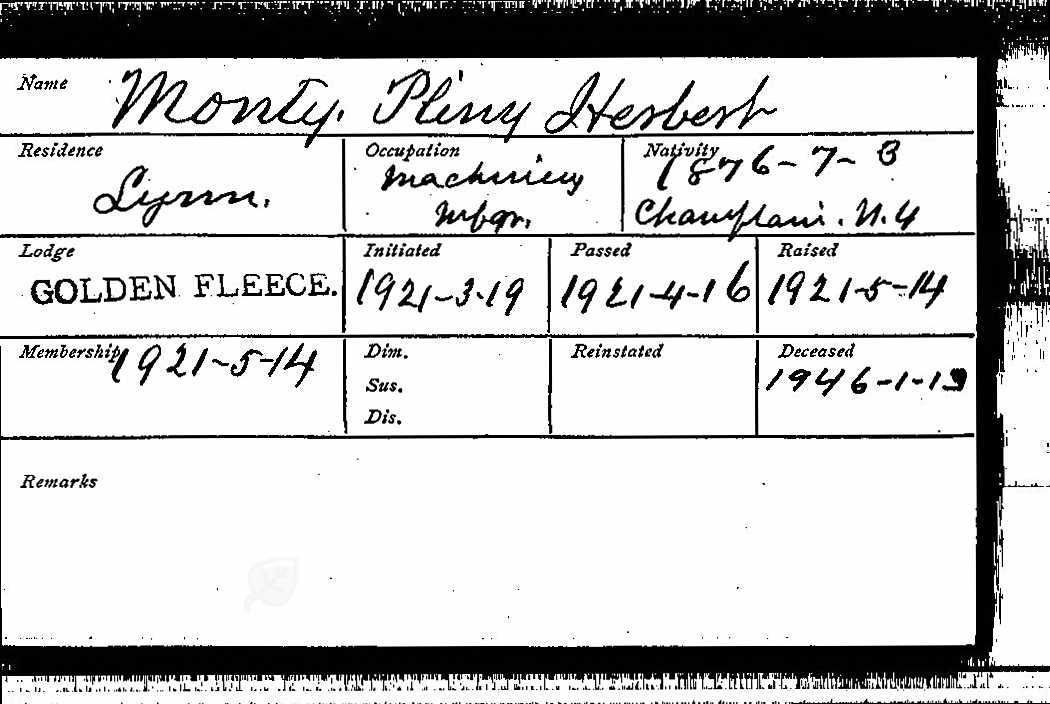 Name Monty. Pliny Herbert
Residence Occupation Nativity
Lynn. Machinery 1876-7-3
Mfgr. Champlain. N.Y
Lodge Initiated Passed Raised
GOLDEN FLEECE. 1921-3-19 1921-4-16 1921-5-14
Membership 1921-5-14 Dim. Reinstated Deceased
Sus. 1946-1-
Dis.
Remarks